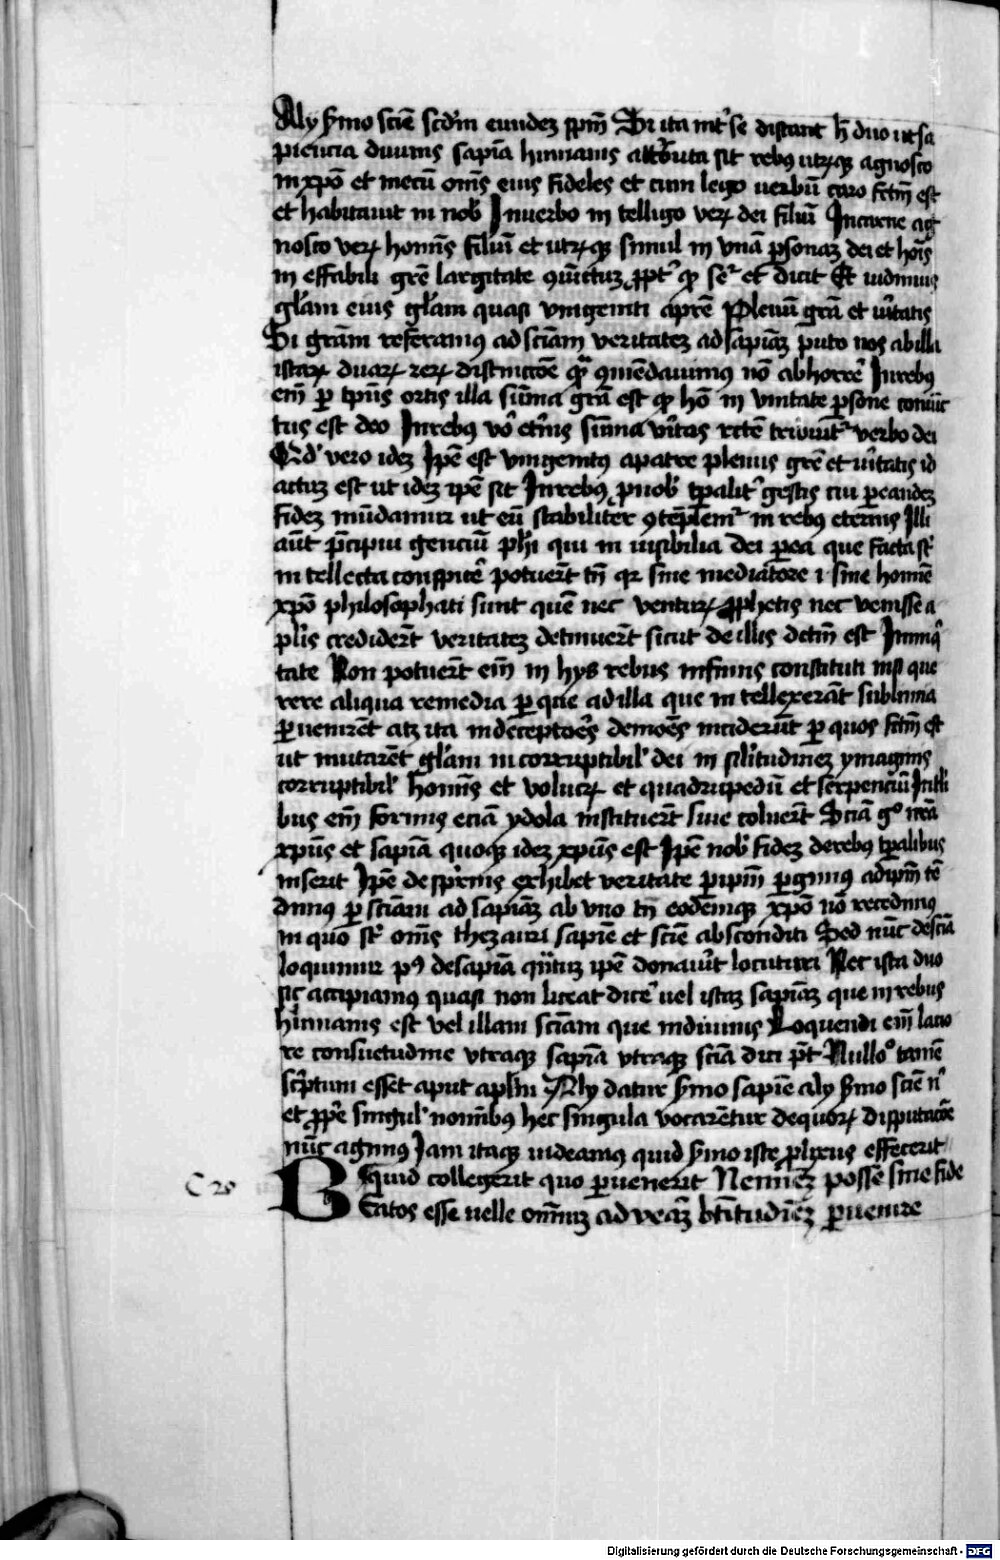 Aly s̄mo sciē scd̄m eundez sp̄m Si ita int̾ se distant h̄ duo ut sa
piencia diuinis sapīa humanis attributa sit rebꝯ utrūqꝫ agnosco
in xp̄o et mecū om̄s eius fideles et cum lego uerbū caro fctm̄ est
et habitauit in nob̾ In uerbo in telligo verꝝ dei filiū In carne ag
nosco verꝝ hom̄is filiū et utrūqꝫ simul in vnā ꝑsonaz dei et hōis
in effabili grē largitate ꝯiūctuz ꝓpt̾ qꝫ se͛ et dicit Et uidimus
gl̄am eius gl̄am quasi vnigeniti a prē Plenū grā et ūitatis
Si grām referamꝯ ad sciam veritatez ad sapiāz puto nos ab illa
istaꝝ duaꝝ reꝝ distinctōe quā ꝯmēdauimꝯ nō abhorrē In rebꝯ
em̄ ꝑ tp̄us ortis illa sūma grā est qꝫ hō in vnitate ꝑsone coniūc
tus est deo In rebꝯ vo̾ et̾nis sūma ūitas rctē tribuit̾ verbo dei
Qd̾ vero idez Ip̄e est vnigenitꝯ a patre plenus grē et ūitatis id
actuz est ut idez ip̄e sit In rebꝯ ꝓ nob̾ tp̄alit̾ gestis cui ꝑ eandez
fidez mūdamur ut eū stabiliter ꝯtēplem̾ in rebꝯ eternis Illi
aūt p̄cipui genciū phi̾ qui in uisibilia dei ꝑ ea que facta st̾
in tellecta conspicē potuer̄t tn̄ qr sine mediatore i sine homīe
xp̄o philosophati sunt quē nec venturꝝ ꝓphetis nec venisse a
pl̄is credider̄t veritatez detinuer̄t sicut de illis dctm̄ est In iniq̾
tate Non potuer̄t em̄ in hys rebus infimis constituti nisi que
rere aliqua remedia ꝑ que ad illa que in tellexerāt sublimia
ꝑuenirēt atqꝫ ita in deceptores demōes inciderūt ꝑ quos fctm̄ est
ut mutarēt gl̄am in corruptibil̾ dei in sil̾itudinez ymaginis
corruptibil̾ hom̄is et volucrꝝ et quadrupedū et serpenciū In tali
bus em̄ formis eciā ydola instituer̄t siue coluer̄t Sciā gͦ nrā
xp̄us et sapīa quoqꝫ idez xp̄us est Ip̄e nob̾ fidez de rebꝯ tp̄alibus
inserit Ip̄e de sp̄ternis exhibet veritate ꝑ ip̄m ꝑgimꝯ ad ip̄m tē
dimꝯ ꝑ sciam ad sapiāz ab vno tn̄ eodemqꝫ xp̄o nō recedimꝯ
in quo st̾ om̄s thezauri sapiē et sciē absconditi Sed nūc de sciā
loquimur pꝯ de sapīa q̄ntuz ip̄e donauit̾ locuturi Nec ista duo
sic accipiamꝯ quasi non liceat dicē uel istaz sapiāz que in rebus
humanis est vel illam sciam que in diuinis Loquendi em̄ lacio
re consuetudine vtraqꝫ sapīa vtraqꝫ sciā dici p̄t Nulloͦ tamē
sc̾ptum esset aput apl̄m Aly datur s̄mo sapiē aly s̄mo sciē n̾
et ꝓpe singul̾ nomībꝯ hec singula vocarētur de quorꝝ disputacōe
nūc agimꝯ Iam itaqꝫ uideamꝯ quid s̄mo iste ꝓlixus effecerit
quid collegerit quo ꝑuenerit Neminez posse sine fide
C 20 Beatos esse uelle omniuz ad verāz btitudinez ꝑuenire